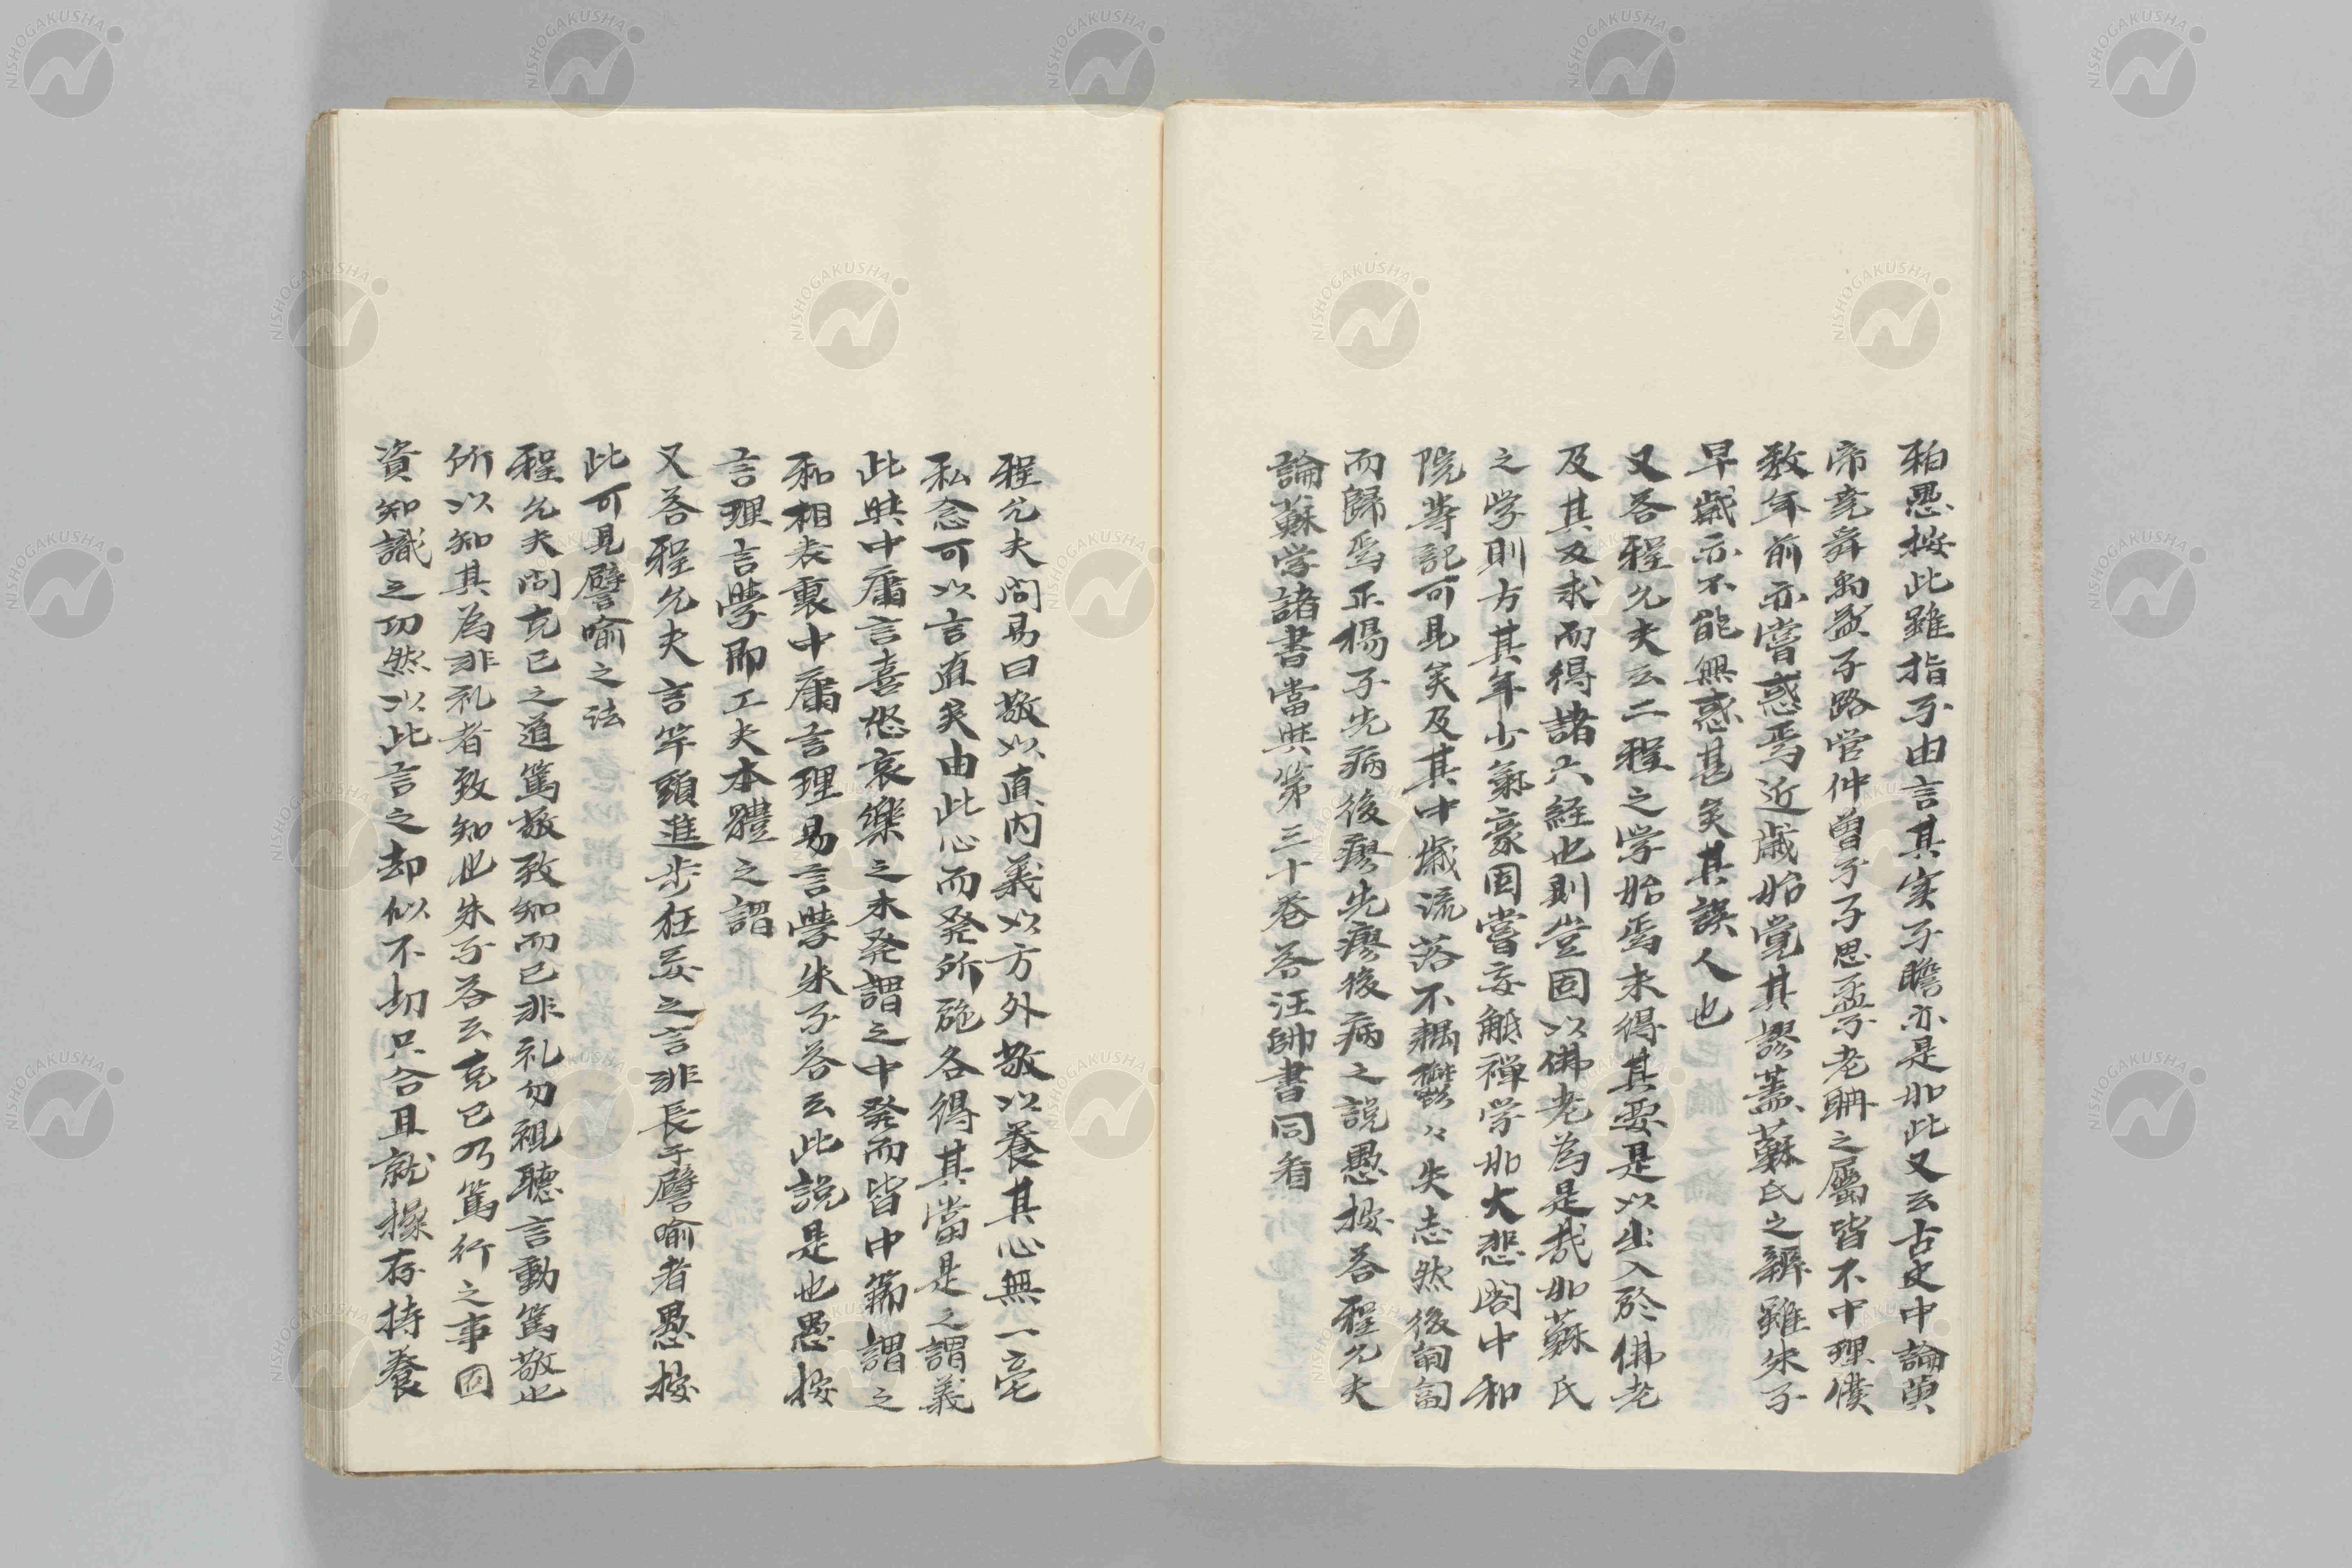 和愚按此雖指子由言其実子瞻亦是如此又云古史中論黄
帝堯舜禹益子路管仲曽子子思孟子老聃之屬皆不中理僕
数年前亦嘗惑焉近歳始覚其謬蓋蘇氏之辨雖朱子
早歳亦不能無惑甚矣其誤人也
又答程允夫云二程之学始焉未得其要是以出入於佛老
及其反求而得諸六経也則豈固以佛老為是哉如蘇氏
之学則方其年少氣豪固嘗妄觝禅学如大悲閣中和
院等記可見矣及其中歳流落不耦鬱々失志然後匍匐
而歸焉正楊子先病後瘳先瘳後病之説愚按答程允夫
論蘇学諸書當與第三十巻答汪帥書同看
程允夫問易曰敬以直内義以方外敬以養其心無一毫
私念可以言直矣由此心而発所施各得其當是之謂義
此與中庸言喜怒哀樂之未発謂之中発而皆中節謂之
和相表裏中庸言理易言學朱子答云此説是也愚按
言理言學即工夫本體之謂
又答程允夫言竿頭進歩狂妄之言非長于譬喻者愚按
此可見譬喻之法
程允夫問克己之道篤敬致知而已非礼勿視聽言動篤敬也
所以知其為非礼者致知也朱子答云克己乃篤行之事固
資知識之功然以此言之却似不切只合且就操存持養